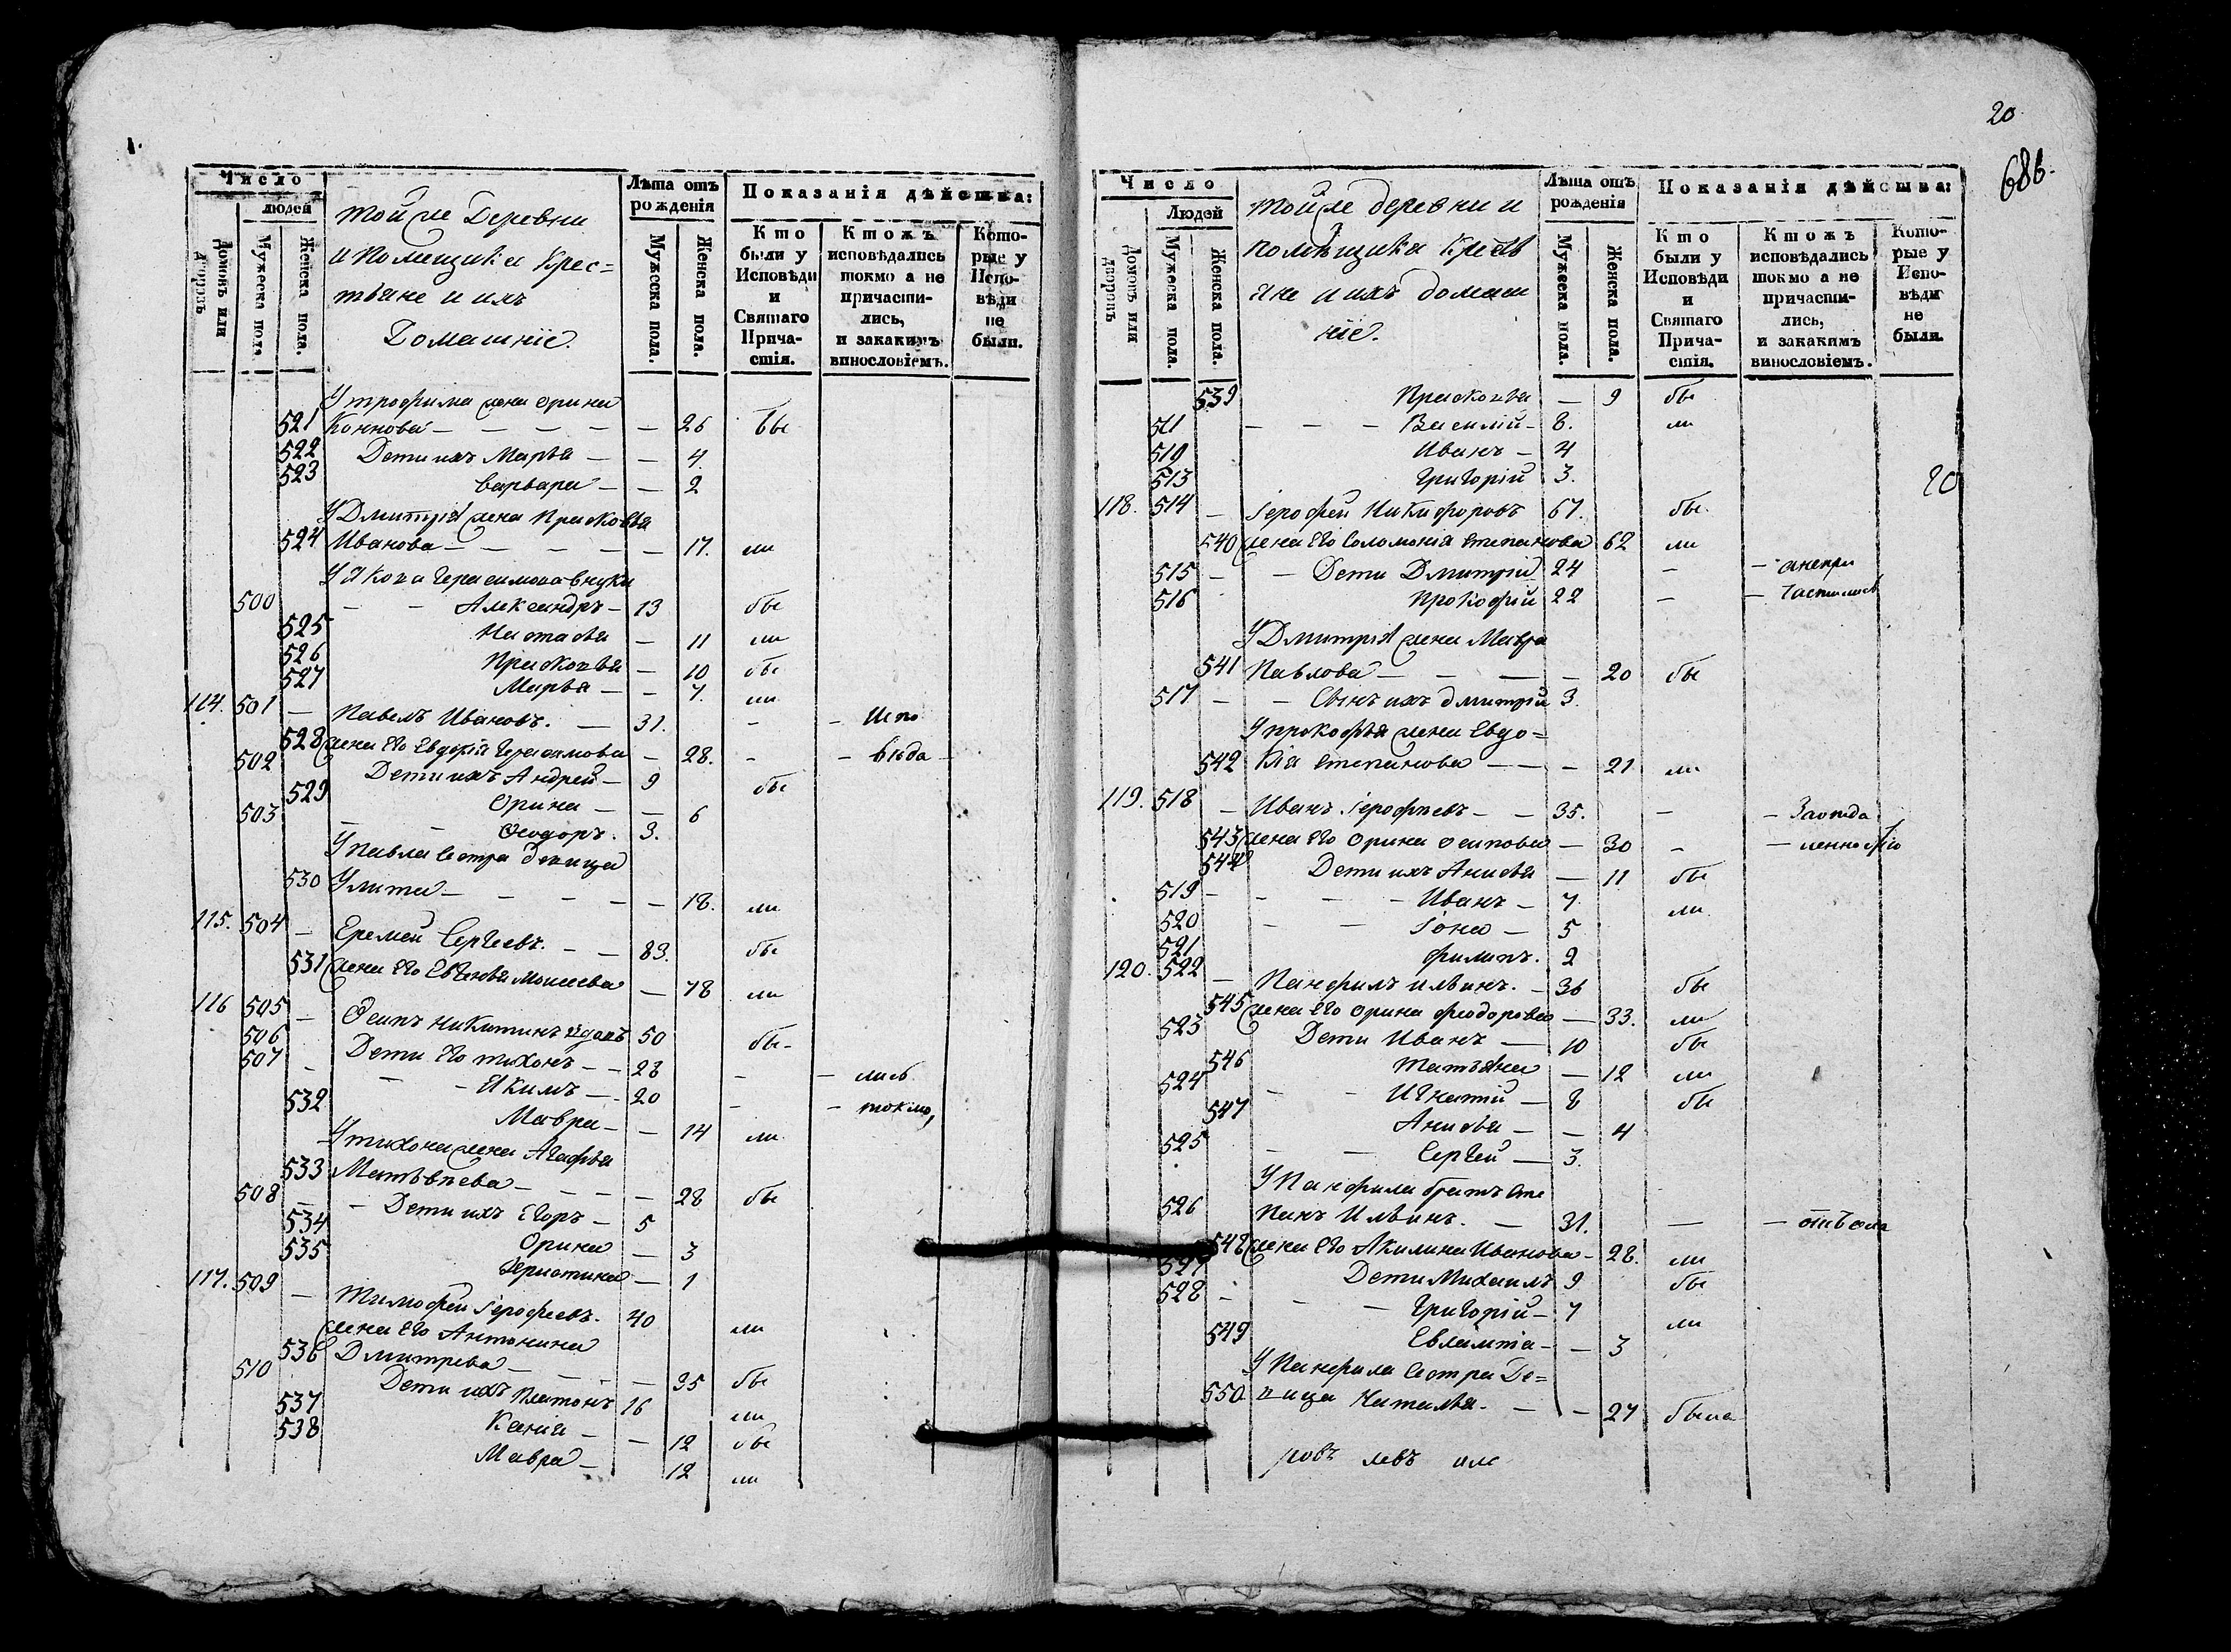 Число
людей
Домовъ или дворовъ
Мужеска пола.
Женска пола.
той же Деревни
и помещика Крес=
тьяне и ихъ
Домашніе.
Лѣта отъ рожденія
Мужеска пола.
Женска пола.
Показанія дѣйства:
Кто были у Исповѣди и Святаго Прича-стія.
Ктожъ исповѣдались токмо а не причасти-лись, и закакимъ винословіемъ.
Кото-рые у Испо-вѣди не были.
У трофима жена орина
521 Кононова — — 26 бы
522 Дети ихъ Марья — — 4.
523 варвара — — 2
У Дмитрія жена Прасковья
524 Иванова — — 17. ли
У Якова Герасимова внуки
500 — — Александръ — 13 бы
525 Настасья — 11 ли
526 Прасковья — 10 бы
527 Марья — — 7. ли
114. 501 — Павелъ Ивановъ. — 31. — — Испо
528 жена Его Евдокія Герасимова — 28. — — вѣда —
502 Дети ихъ Андрей — 9 бы
529 Орина — — 6
503 — — Феодоръ. 3.
У павла сестра девица
530 Улита — — 18. ли
115. 504 — Еремей Сергеевъ. — — 83. бы
531 жена Его Евгенья Моисеева — 78 ли
116 505 — Осипъ Никитинъ вдовъ 50 бы —
506 Дети Его тихонъ — — 28 — — лись
507 — — Якимъ — 20 — — токмо,
532 Мавра — — 14 ли
У тихона жена Агафья
533 Матвѣева — — 28 бы
508 — — Дети ихъ Егоръ — 5
534 Орина — 3
535 Христина — 1
117. 509 — Тимофей Іерофеевъ. 40 ли
жена Его Антонина
536 Дмитрева — — 35 бы
510 Дети ихъ Платонъ 16 ли
537 Ксенія — — 12 бы
538 Мавра — 12 ли
20
686.
Число
Людей
Домовъ или дворовъ
Мужеска пола.
Женска пола.
той же деревни и
помѣщика Кресть
яне и ихъ домаш
ніе.
Лѣта отъ рожденія
Мужеска пола.
Женска пола.
Показанія дѣйства:
Кто были у Исповѣди и Святаго Прича-стія.
Ктожъ исповѣдались токмо а не причасти-лись, и закакимъ винословіемъ.
Кото-рые у Испо-вѣди не были.
539 Прасковья — 9 бы
511 — — — Василій — 8. ли
512 Иванъ — 4
513 Григорій 3.
20
118. 514 — Іерофей Никифоровъ 67. бы
540 жена Его Соломонія Степанова 62 ли
515 — — Дети Дмитрій 24 — — анепри
516 Прокофій 22 — — частились
У Дмитрія жена Мавра
541 Павлова — — — — 20 бы
517 — — Сынъ ихъ дмитрій 3.
У прокофья жена Евдо=
542 кія Степанова — — — 21 ли
119. 518 — Иванъ Іерофеевъ — — 35. — —
543 жена Его Орина осипова — 30 — —
544 Дети ихъ Анисья — 11 бы
519 — — — — Иванъ — 7 ли
520 — — Іона — 5
521 филипъ. 2
120. 522 — Панфилъ ильинъ. — 36 бы
545 жена Его Орина Феодорова — 33. ли
523 Дети Иванъ — 10 бы
546 Татьяна — 12 ли
524 — — Игнатій — 8 бы
547 Анисья — — 4
525 — — Сергей — 3.
У Панфила братъ Сте
526 панъ Ильинъ. — 31. — —
548 жена Его Акилина Иванова — 28. ли
527 Дети Михаилъ 9 бы
528 — — — Григорій — 7 ли
549 Евлампіа — — 3
У Панфила Сестра Де=
550 вица Наталья. — — 27 была